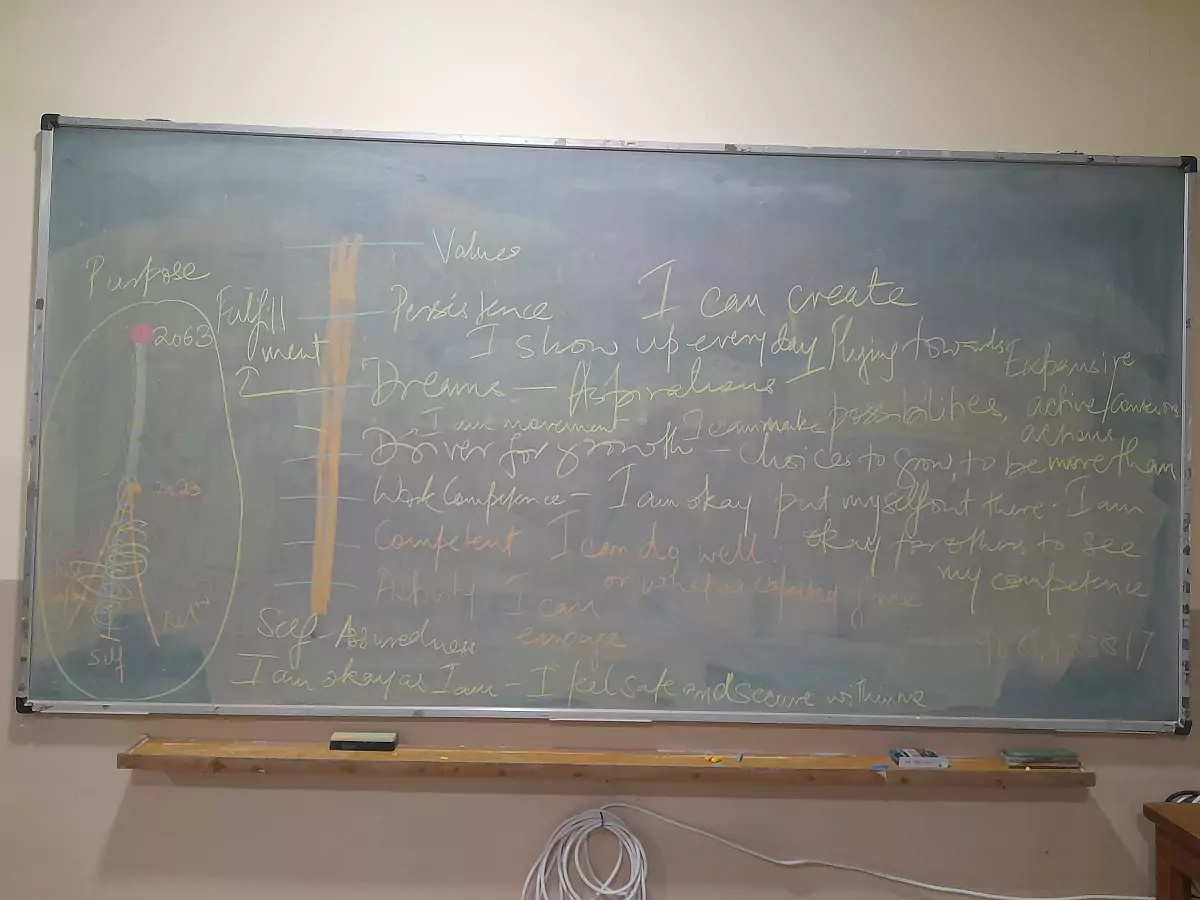 Values
Purpose
Persistence I can create
Fulfill
ment
2063
I show up everyday flying towards
Expansive
2
Dreams - Aspirations
I am movement I can make possibilities, active/
actions
Driver for growth - choices to grow, to be more than
Work Competence - I am okay put myself out there. I am
okay for others to see
my competence
Competent I can do well.
or what is expected of me
Activity I can
engage
Self Assuredness
I am okay as I am - I feel safe and secure within me